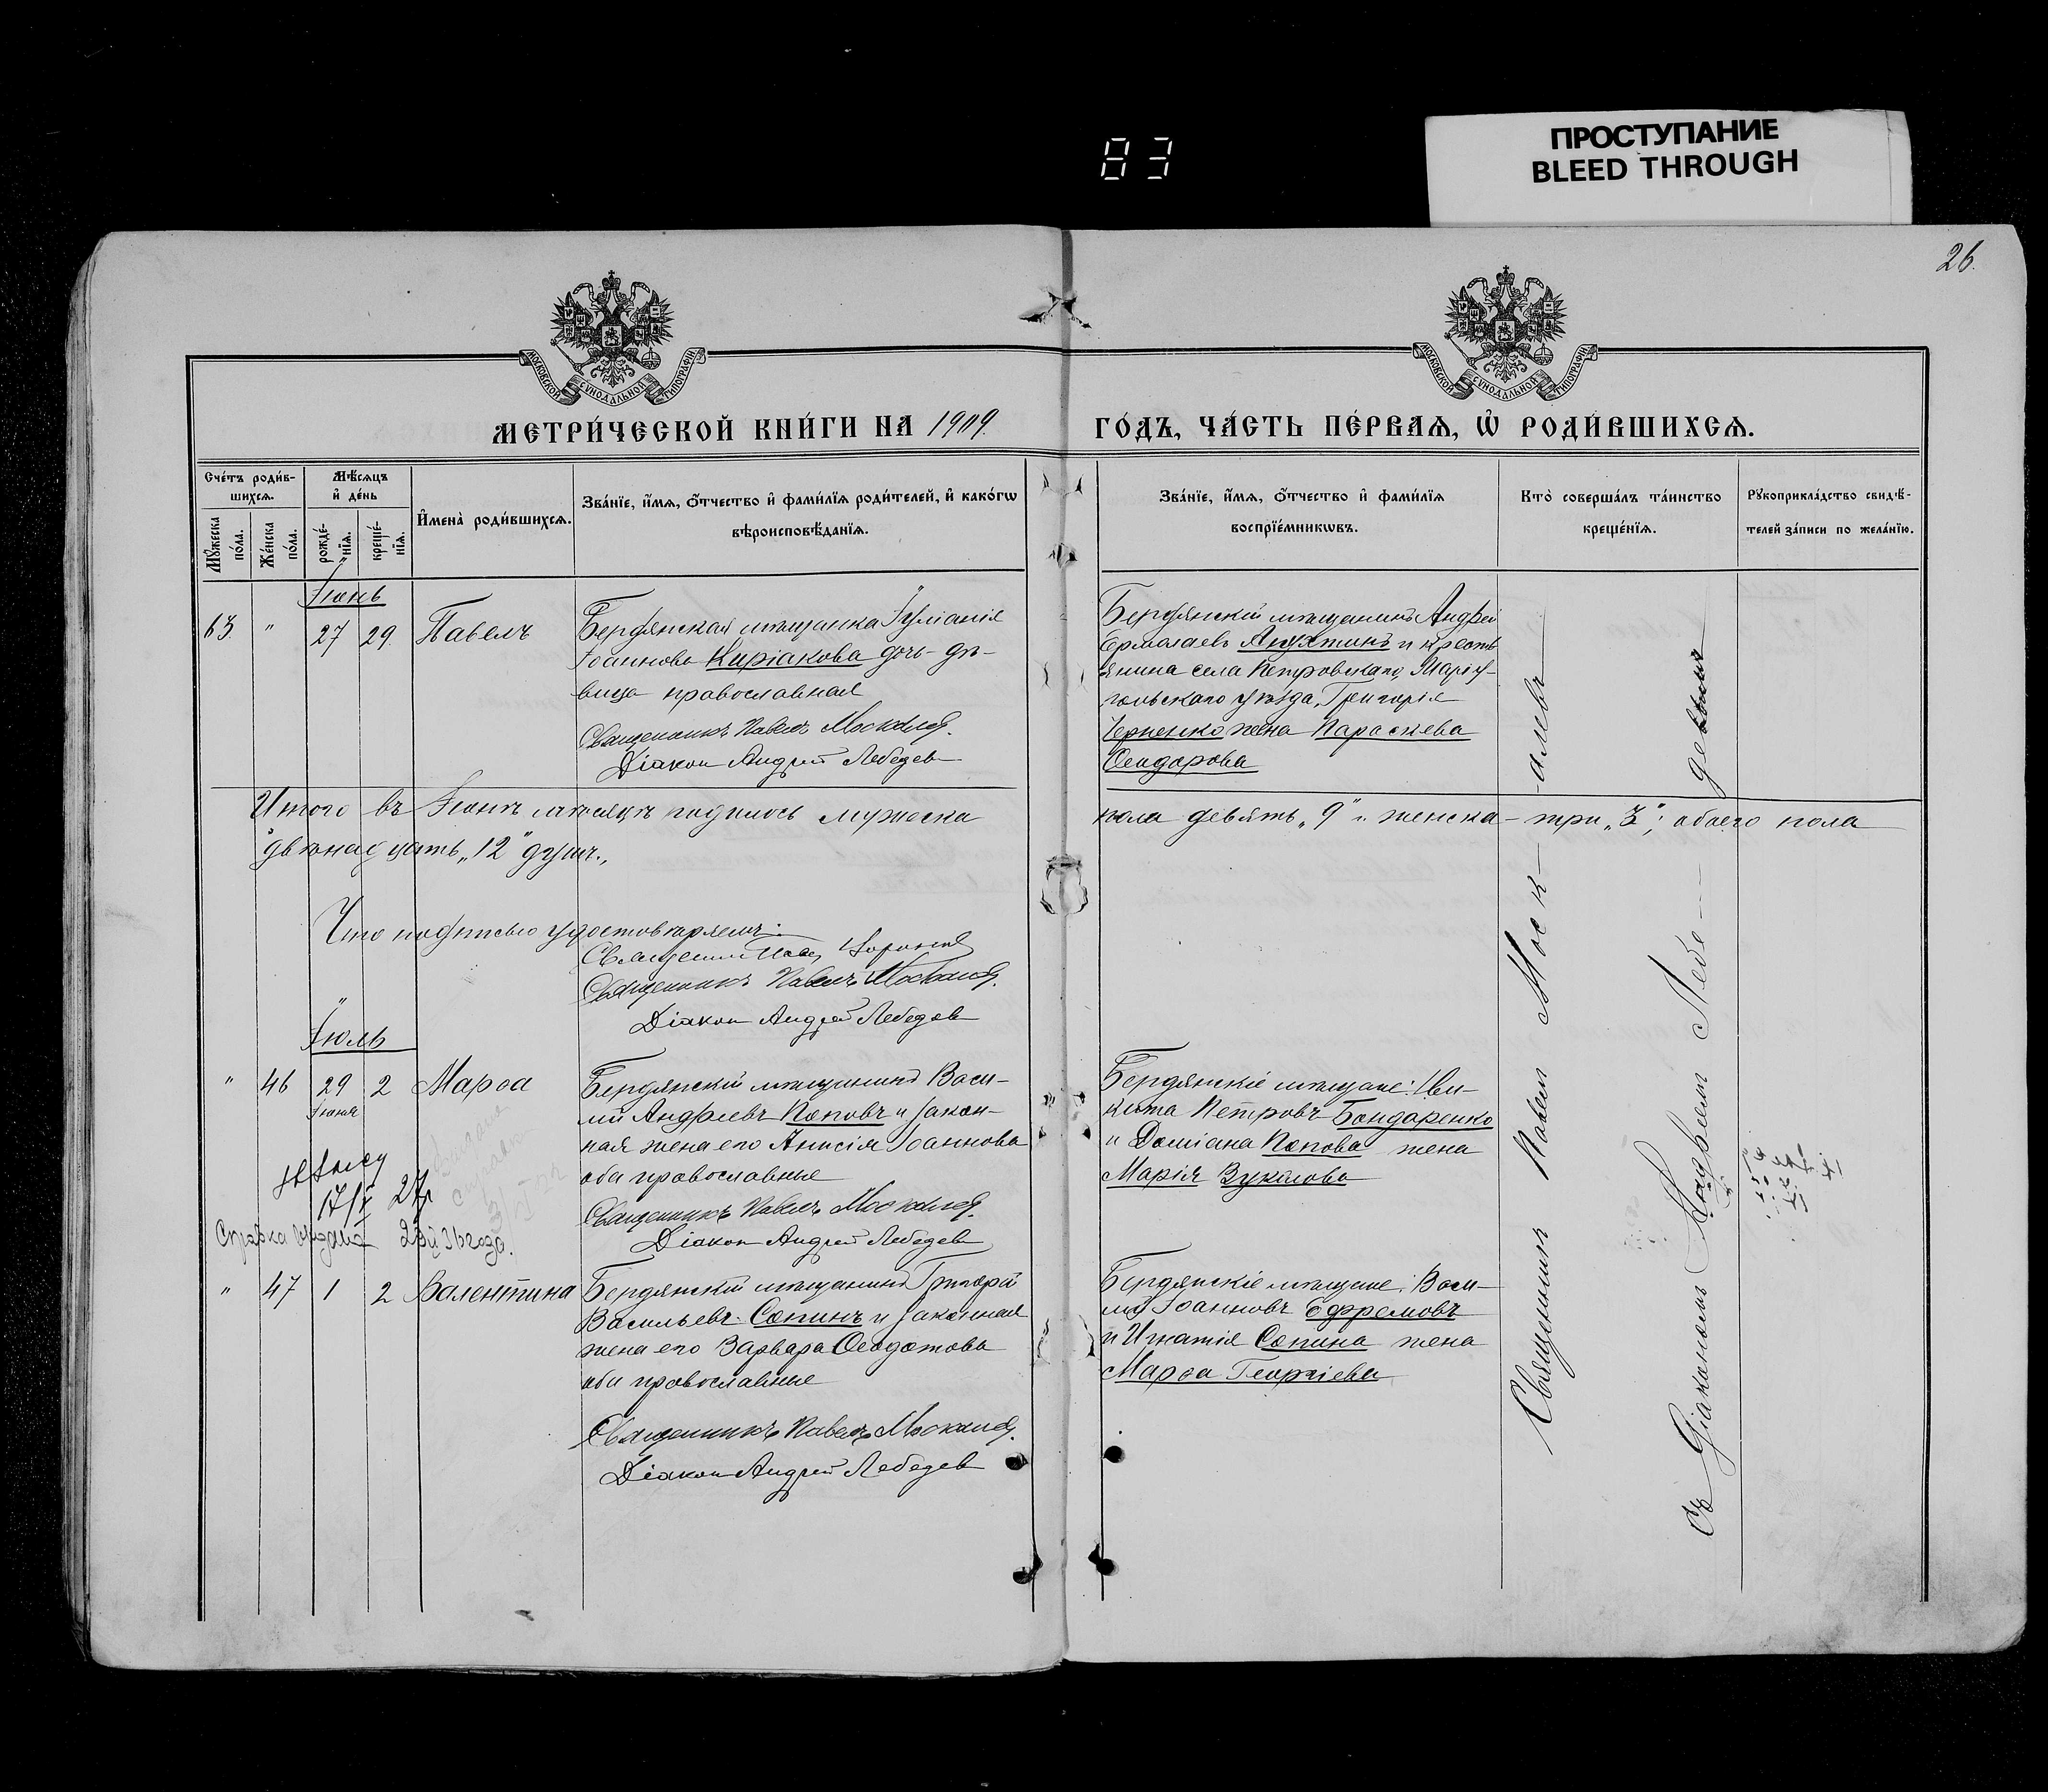 83
ПРОСТУПАНИЕ
BLEED THROUGH
26.
МОСКОВСКОЙ СѴНОДАЛЬНОЙ ТИПОГРАФІИ
МОСКОВСКОЙ СѴНОДАЛЬНОЙ ТИПОГРАФІИ
МЕТРИ́ЧЕСКОЙ КНИ́ГИ НА 1909.
ГО́ДЪ, ЧА́СТЬ ПЕ́РВАѦ, Ѡ҆ РОДИ́ВШИХСѦ.
Сче́тъ роди́в-
шихсѧ.
Мꙋ́жеска по́ла.
Же́нска по́ла.
Мѣ́сѧцъ
и҆ де́нь
рожде́-
нїѧ.
креще́-
нїѧ.
И҆мена̀ роди́вшихсѧ.
Зва́нїе, и҆́мѧ, ѻ҆́тчество и҆ фами́лїѧ роди́телей, и҆ како́гѡ
вѣроисповѣ́данїѧ.
Зва́нїе, и҆́мѧ, ѻ҆́тчество и҆ фами́лїѧ
воспрїе́мникѡвъ.
Кто̀ соверша́лъ та́инство
креще́нїѧ.
Рꙋкоприкла́дство свидѣ́-
телей за́писи по жела́нїю.
Іюнь
63 " 27 29. Павелъ
Бердянская мѣщанка Іуліанія
Іоаннова Киріакова дочь-дѣ-
вица православная
Священникъ Павелъ Москалев.
Діакон Андрей Лебедев
Бердянскій мѣщанинъ Андрей
Ермолаевъ Апухтинъ и кресть
янина села Петровскаго, Маріу-
польскаго уѣзда, Григорія
Черненко жена Параскева
Ѳеодорова
Итого въ Іюнѣ мѣсяцѣ родилось мужеска
пола девять „9" и женска - три „3"; обоего пола
двѣнадцать „12" душъ.,
Что подписью удостовѣряемъ:
Священникъ Павелъ Москалев.
Діакон Андрей Лебедев
Іюль
" 46 29 2 Марѳа
Іюня
Бердянскій мѣщанинъ Васи-
лій Андреевъ Поповъ и закон-
ная жена его Анисія Іоаннова
оба православные
Священникъ Павелъ Москалев.
Діакон Андрей Лебедев
Бердянскіе мѣщане: Ни-
кита Петровъ Бондаренко
и Даміана Попова жена
Марія Вуколова
17/X 27г
Справка выдана 31 года.
" 47 1 2 Валентина
Бердянскій мѣщанинъ Григорій
Васильевъ Сопинъ и законная
жена его Варвара Ѳеодотова
оба православные
Священникъ Павелъ Москалев.
Діакон Андрей Лебедев
Бердянскіе мѣщане: Васи-
лій Іоанновъ Ефремовъ
и Игнатія Сопина жена
Марѳа Георгіева
Священник Павел Моск-алевъ
Съ Діакономъ Андреем Лебе-девымъ